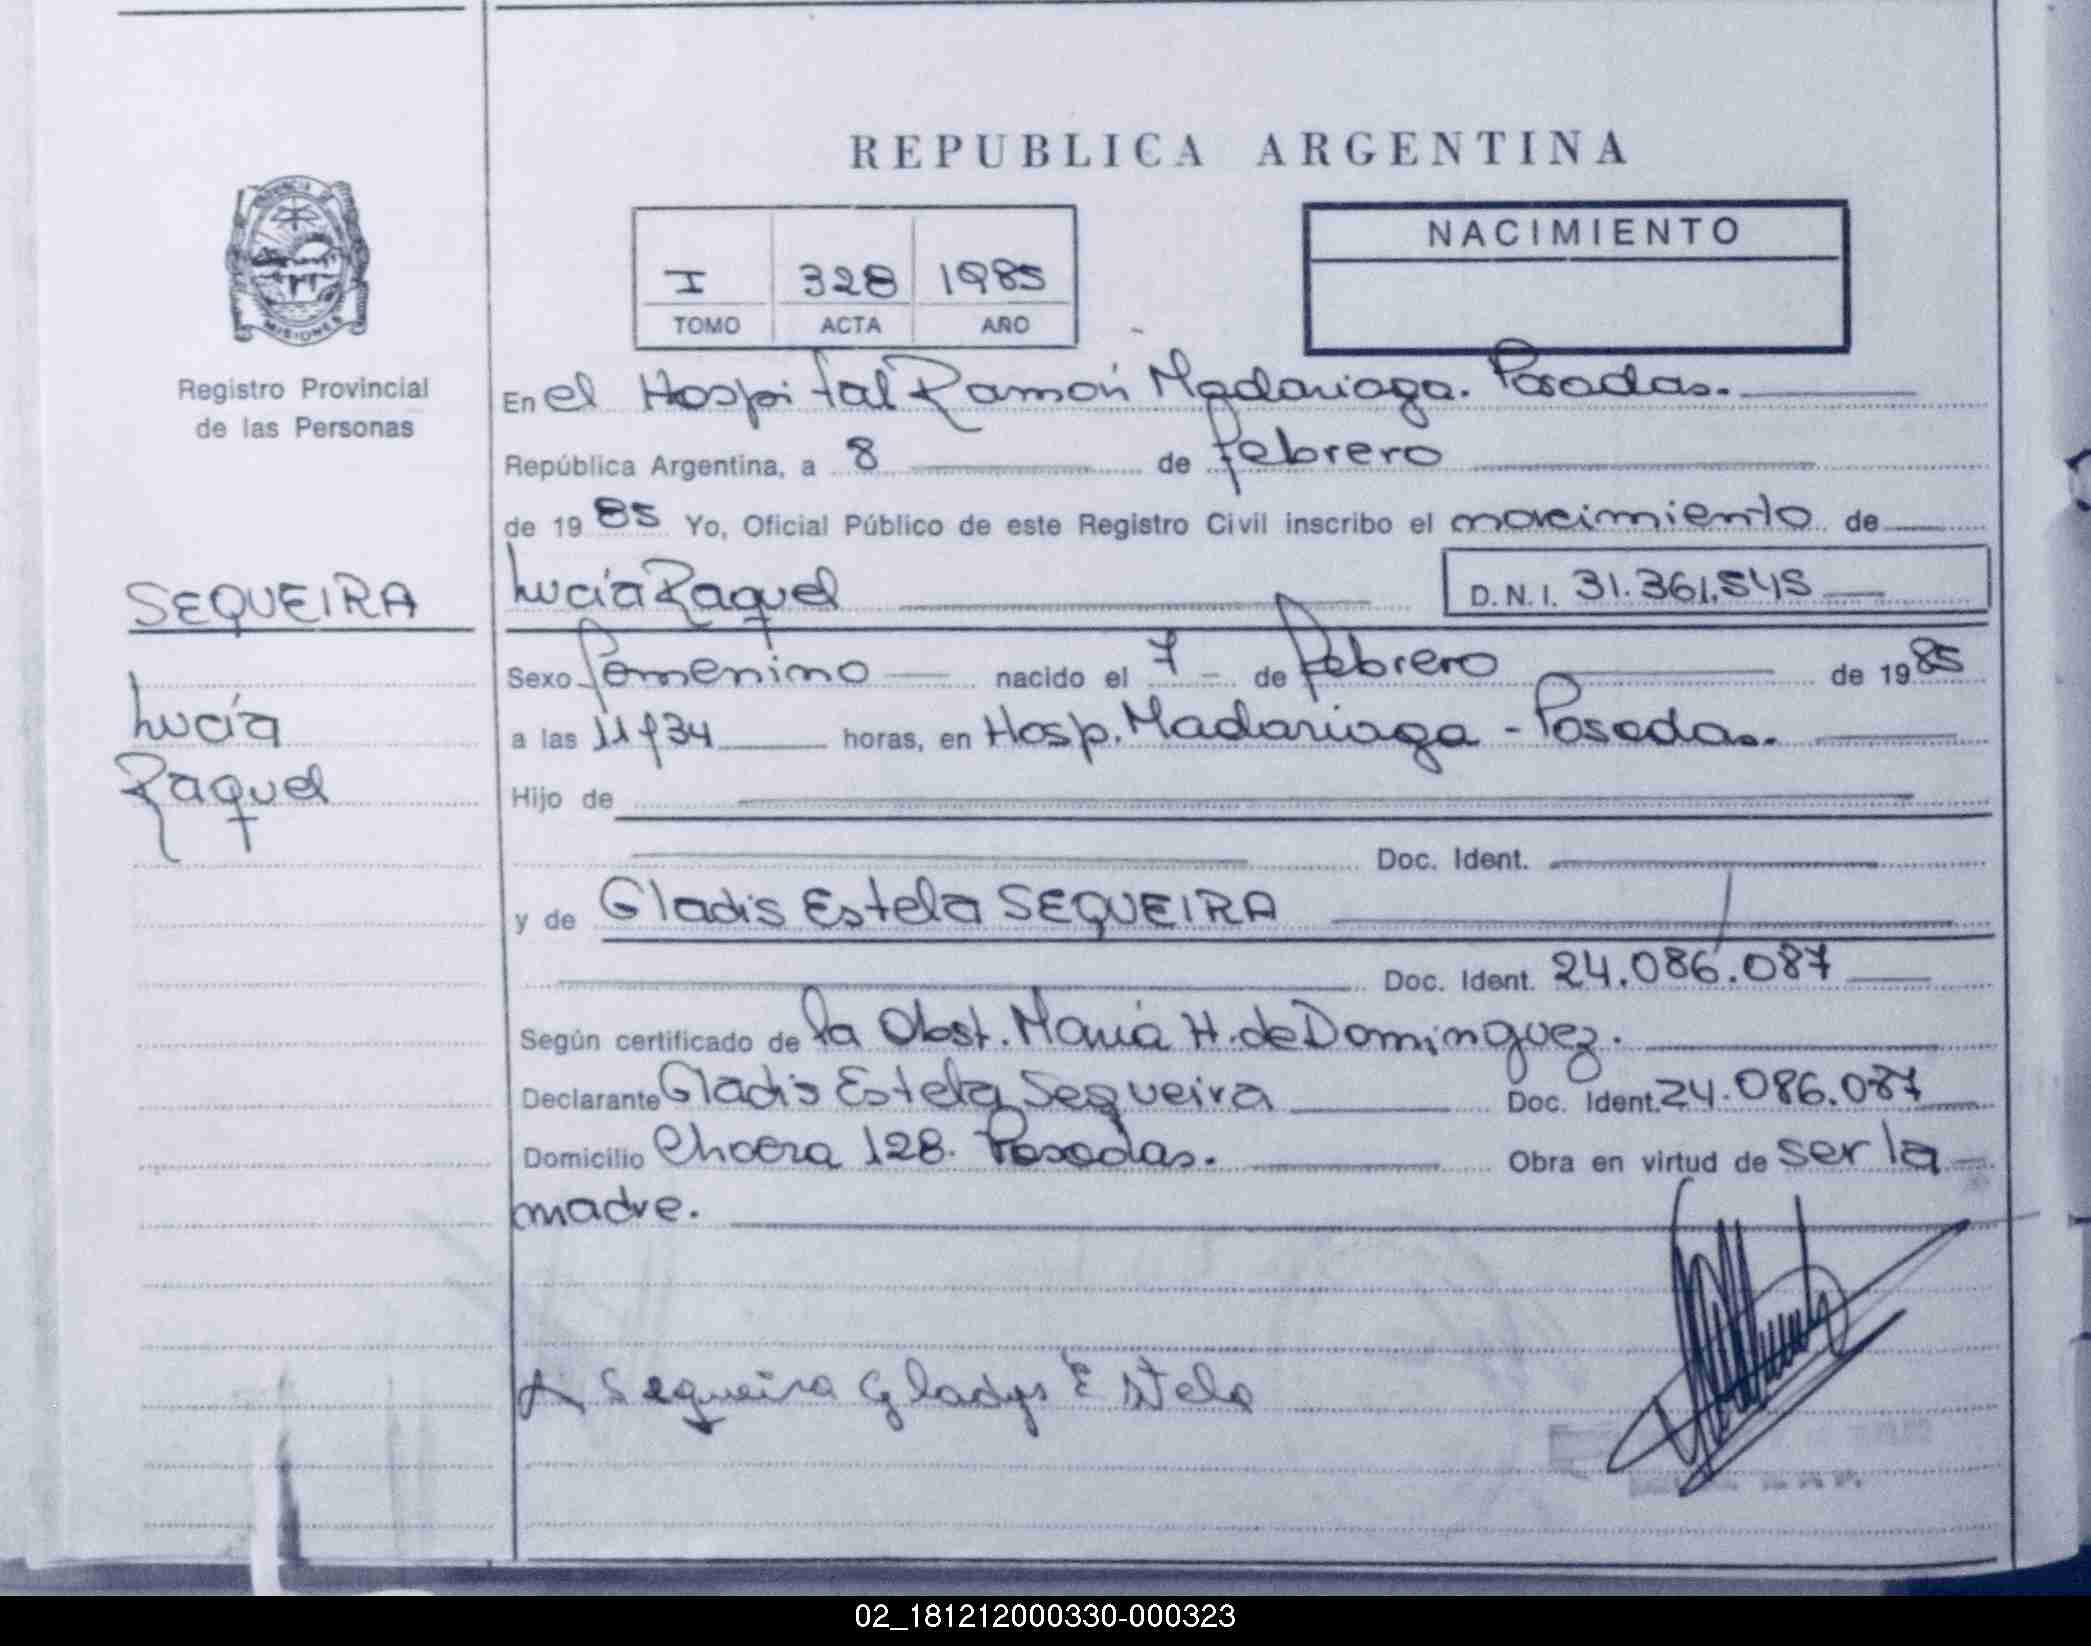 REPUBLICA ARGENTINA
NACIMIENTO
I 328 1985
TOMO ACTA AÑO
PROVINCIA DE
MISIONES
Registro Provincial
de las Personas
En el Hospital Ramón Madariaga. Posadas.
República Argentina, a 8 de febrero
de 1985 Yo, Oficial Público de este Registro Civil inscribo el nacimiento de
SEQUEIRA
Lucía Raquel D.N.I. 31.361.545
Sexo femenino nacido el 7 de febrero de 1985
Lucía
Raquel
a las 11 y 34 horas, en Hosp. Madariaga - Posadas.
Hijo de
Doc. Ident.
y de Gladis Estela SEQUEIRA
Doc. Ident. 24.086.087
Según certificado de la Obst. María H. de Dominguez.
Declarante Gladis Estela Sequeira Doc. Ident. 24.086.087
Domicilio 128. Posadas. Obra en virtud de ser la
madre.
Sequeira Gladys Estela
02_181212000330-000323